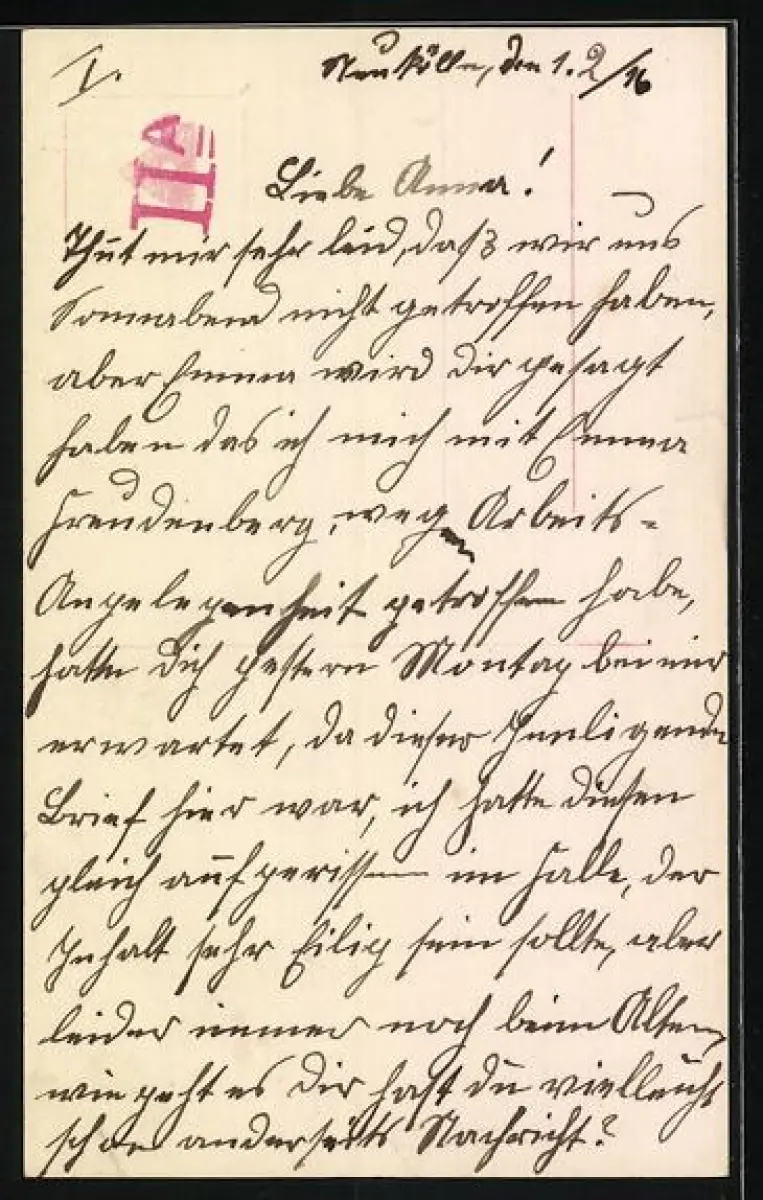 I.
Neukölln, den 1. 2/16
IIA
Liebe Anna!
Thut mir sehr leid, daß wir uns
Sonnabend nicht getroffen haben,
aber Emma wird dir gesagt
haben das ich mich mit Emma
Freudenberg, wegen Arbeits-
Angelegenheit getroffen habe,
hatte dich gestern Montag bei mir
erwartet, da dieser
Brief hier war, ich hatte diesen
gleich aufgerissen im Falle, der
Inhalt sehr Eilig sein sollte, aber
leider immer noch beim Alten,
wie geht es dir hast du vielleicht
schon anderseits Nachricht?